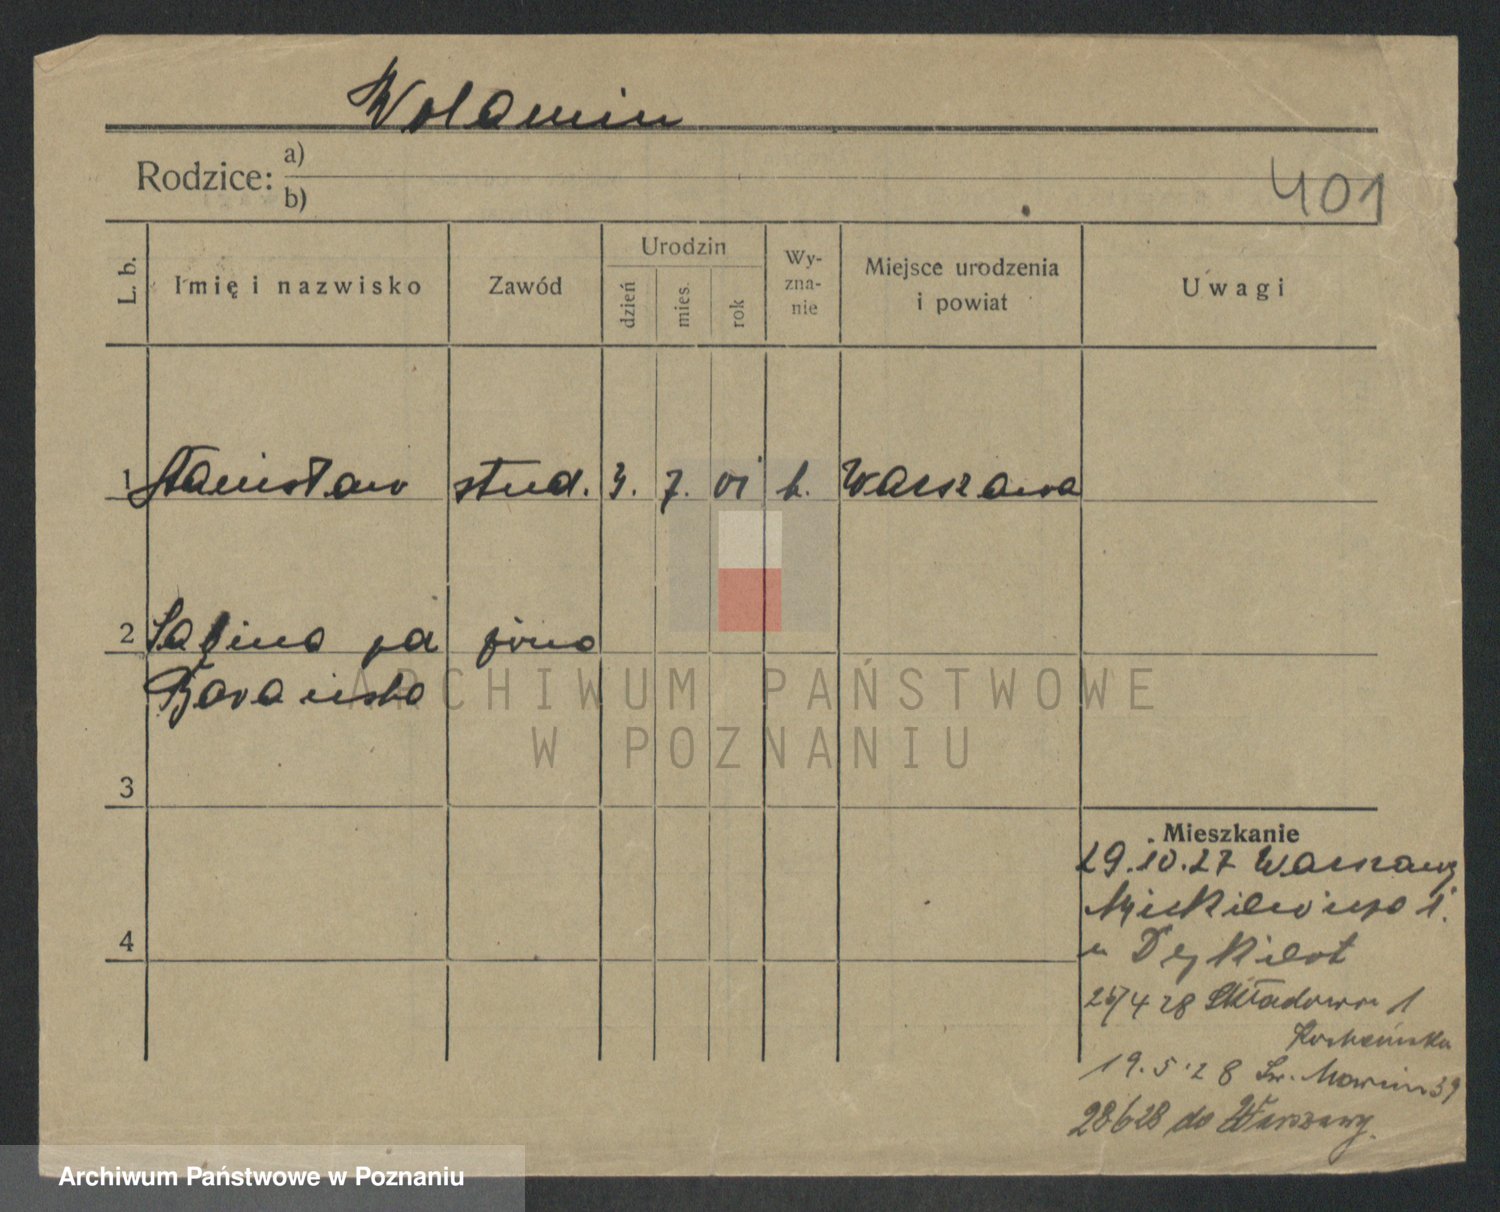 Wolamin
Rodzice: a)
b)
401
L. b. Imię i nazwisko Zawód Urodzin dzień mies. rok Wy-zna-nie Miejsce urodzenia i powiat Uwagi
1 Stanisław stud. 3. 7. 01 k. Warszawa
2 Sabina żona
Barańska
3
Mieszkanie
29.10.27 Warszawy
4
Mickiewicza 1.
u
25/4 28 Składowa 1
19.5.28 Św. Marcin 39
28628 do Warszawy.
ARCHIWUM PAŃSTWOWE
W POZNANIU
Archiwum Państwowe w Poznaniu